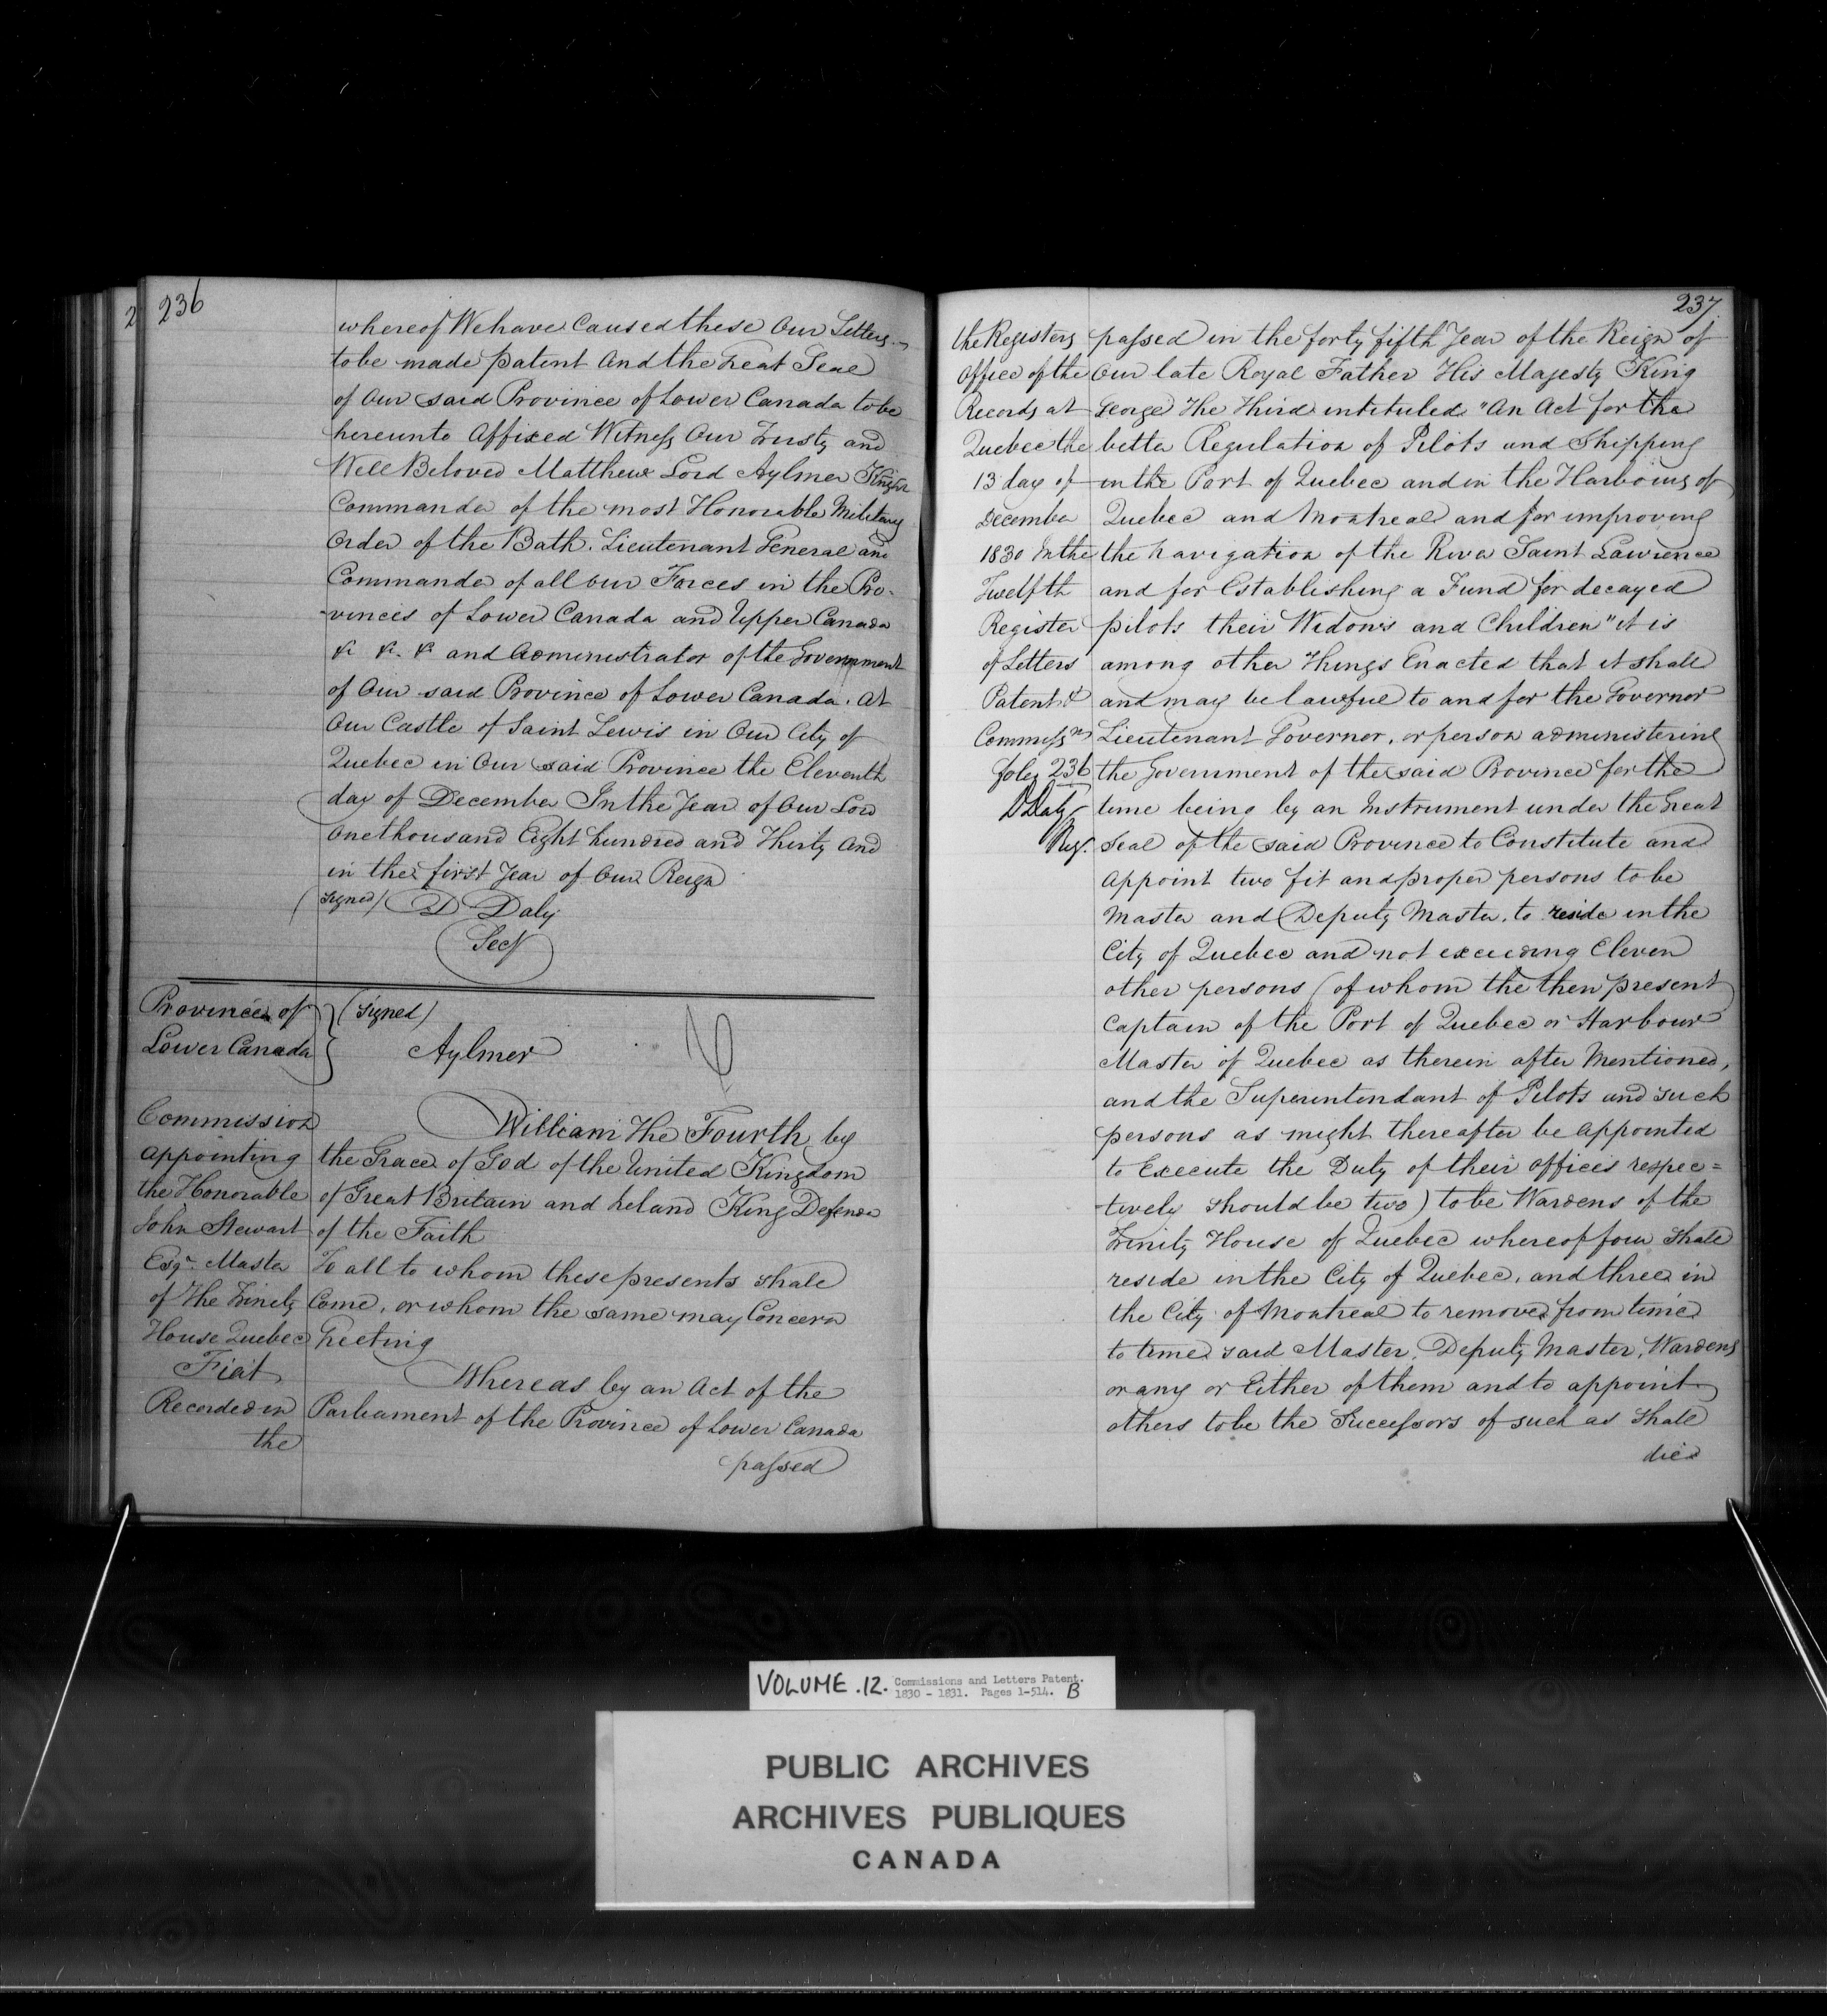 236
whereof We have Caused these Our Letters
to be made patent And the Great Seal
of Our said Province of Lower Canada to be
hereunto Affixed Witness Our Trusty and
Well Beloved Matthew Lord Aylmer Knight
Commander of the most Honorable Military
Order of the Bath. Lieutenant General and
Commander of all our Forces in the Pro-
-vinces of Lower Canada and Upper Canada
&c &c. &c and Administrator of the Government
of Our said Province of Lower Canada. At
Our Castle of Saint Lewis in Our City of
Quebec in Our said Province the Eleventh
day of December In the Year of Our Lord
One thousand Eight hundred and Thirty And
in the first Year of Our Reign
(signed) D Daly
Secy
Province of
Lower Canada
(signed)
Aylmer
Commission
Appointing
the Honorable
John Stewart
Esqr. Master
of The Trinity
House Quebec
Fiat
Recorded in
the
William The Fourth by
the Grace of God of the United Kingdom
of Great Britain and Ireland King Defender
of the Faith
To all to whom these presents shall
Come, or whom the same may Concern
Greeting
Whereas by an Act of the
Parliament of the Province of Lower Canada
passed
237.
the Registers
Office of the
Records at
Quebec the
13 day of
December
1830 In the
Twelfth
Register
of Letters
Patent &
Commissns
folio 236
D Daly
Reg.
passed in the forty fifth Year of the Reign of
Our late Royal Father His Majesty King
George The Third intituled "An Act for the
better Regulation of Pilots and Shipping
in the Port of Quebec and in the Harbours of
Quebec and Montreal and for improving
the navigation of the River Saint Lawrence
and for Establishing a Fund for decayed
pilots their Widows and Children" it is
among other Things Enacted that it shall
and may be lawful to and for the Governor
Lieutenant Governor, or person administering
the Government of the said Province for the
time being by an Instrument under the Great
Seal of the said Province to Constitute and
Appoint two fit and proper persons to be
Master and Deputy Master, to reside in the
City of Quebec and not exceeding Eleven
other persons (of whom the then present
Captain of the Port of Quebec or Harbour
Master of Quebec as therein after Mentioned,
and the Superintendant of Pilots and such
persons as might thereafter be Appointed
to Execute the Duty of their offices respec=
-tively should be two) to be Wardens of the
Trinity House of Quebec whereof four shall
reside in the City of Quebec, and three in
the City of Montreal to remove from time
to time said Master, Deputy Master, Wardens
or any or Either of them and to appoint
others to be the Successors of such as shall
die
VOLUME .12. Commissions and Letters Patent.
1830 - 1831. Pages 1-514. B
PUBLIC ARCHIVES
ARCHIVES PUBLIQUES
CANADA